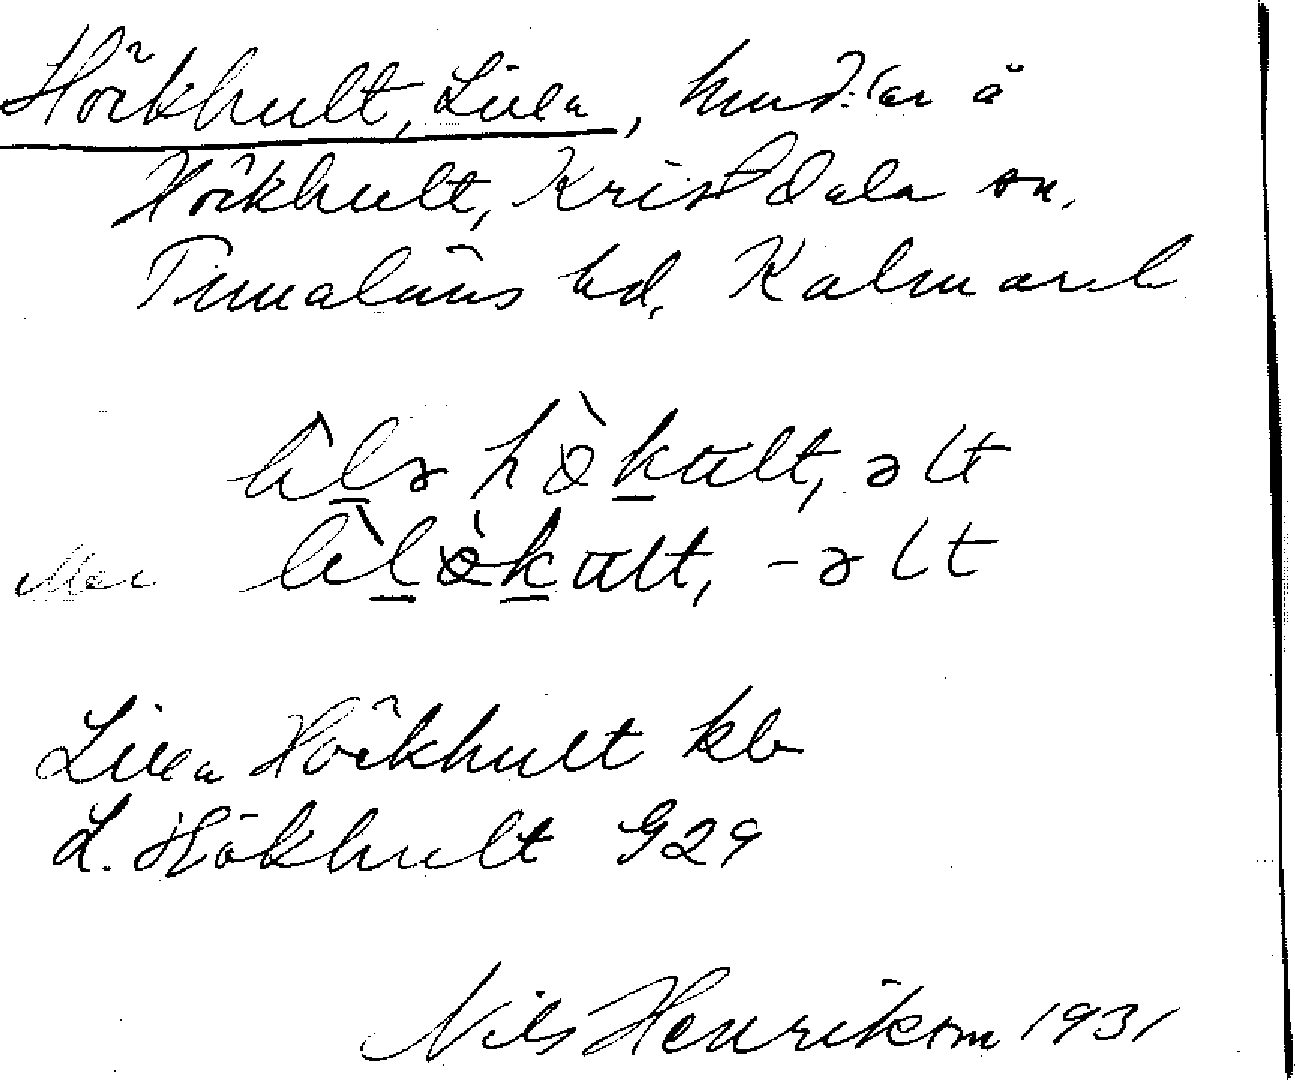 Hökhult, Lilla, hmd:lar å
Hökhult, Kristdala sn,
Tunaläns hd, Kalmar l
lìlа hö̀kult, əlt
eller lìlö̀kult, -əlt
Lilla Hökhult kb
L. Hökhult G29
Nils Henrikson 1931